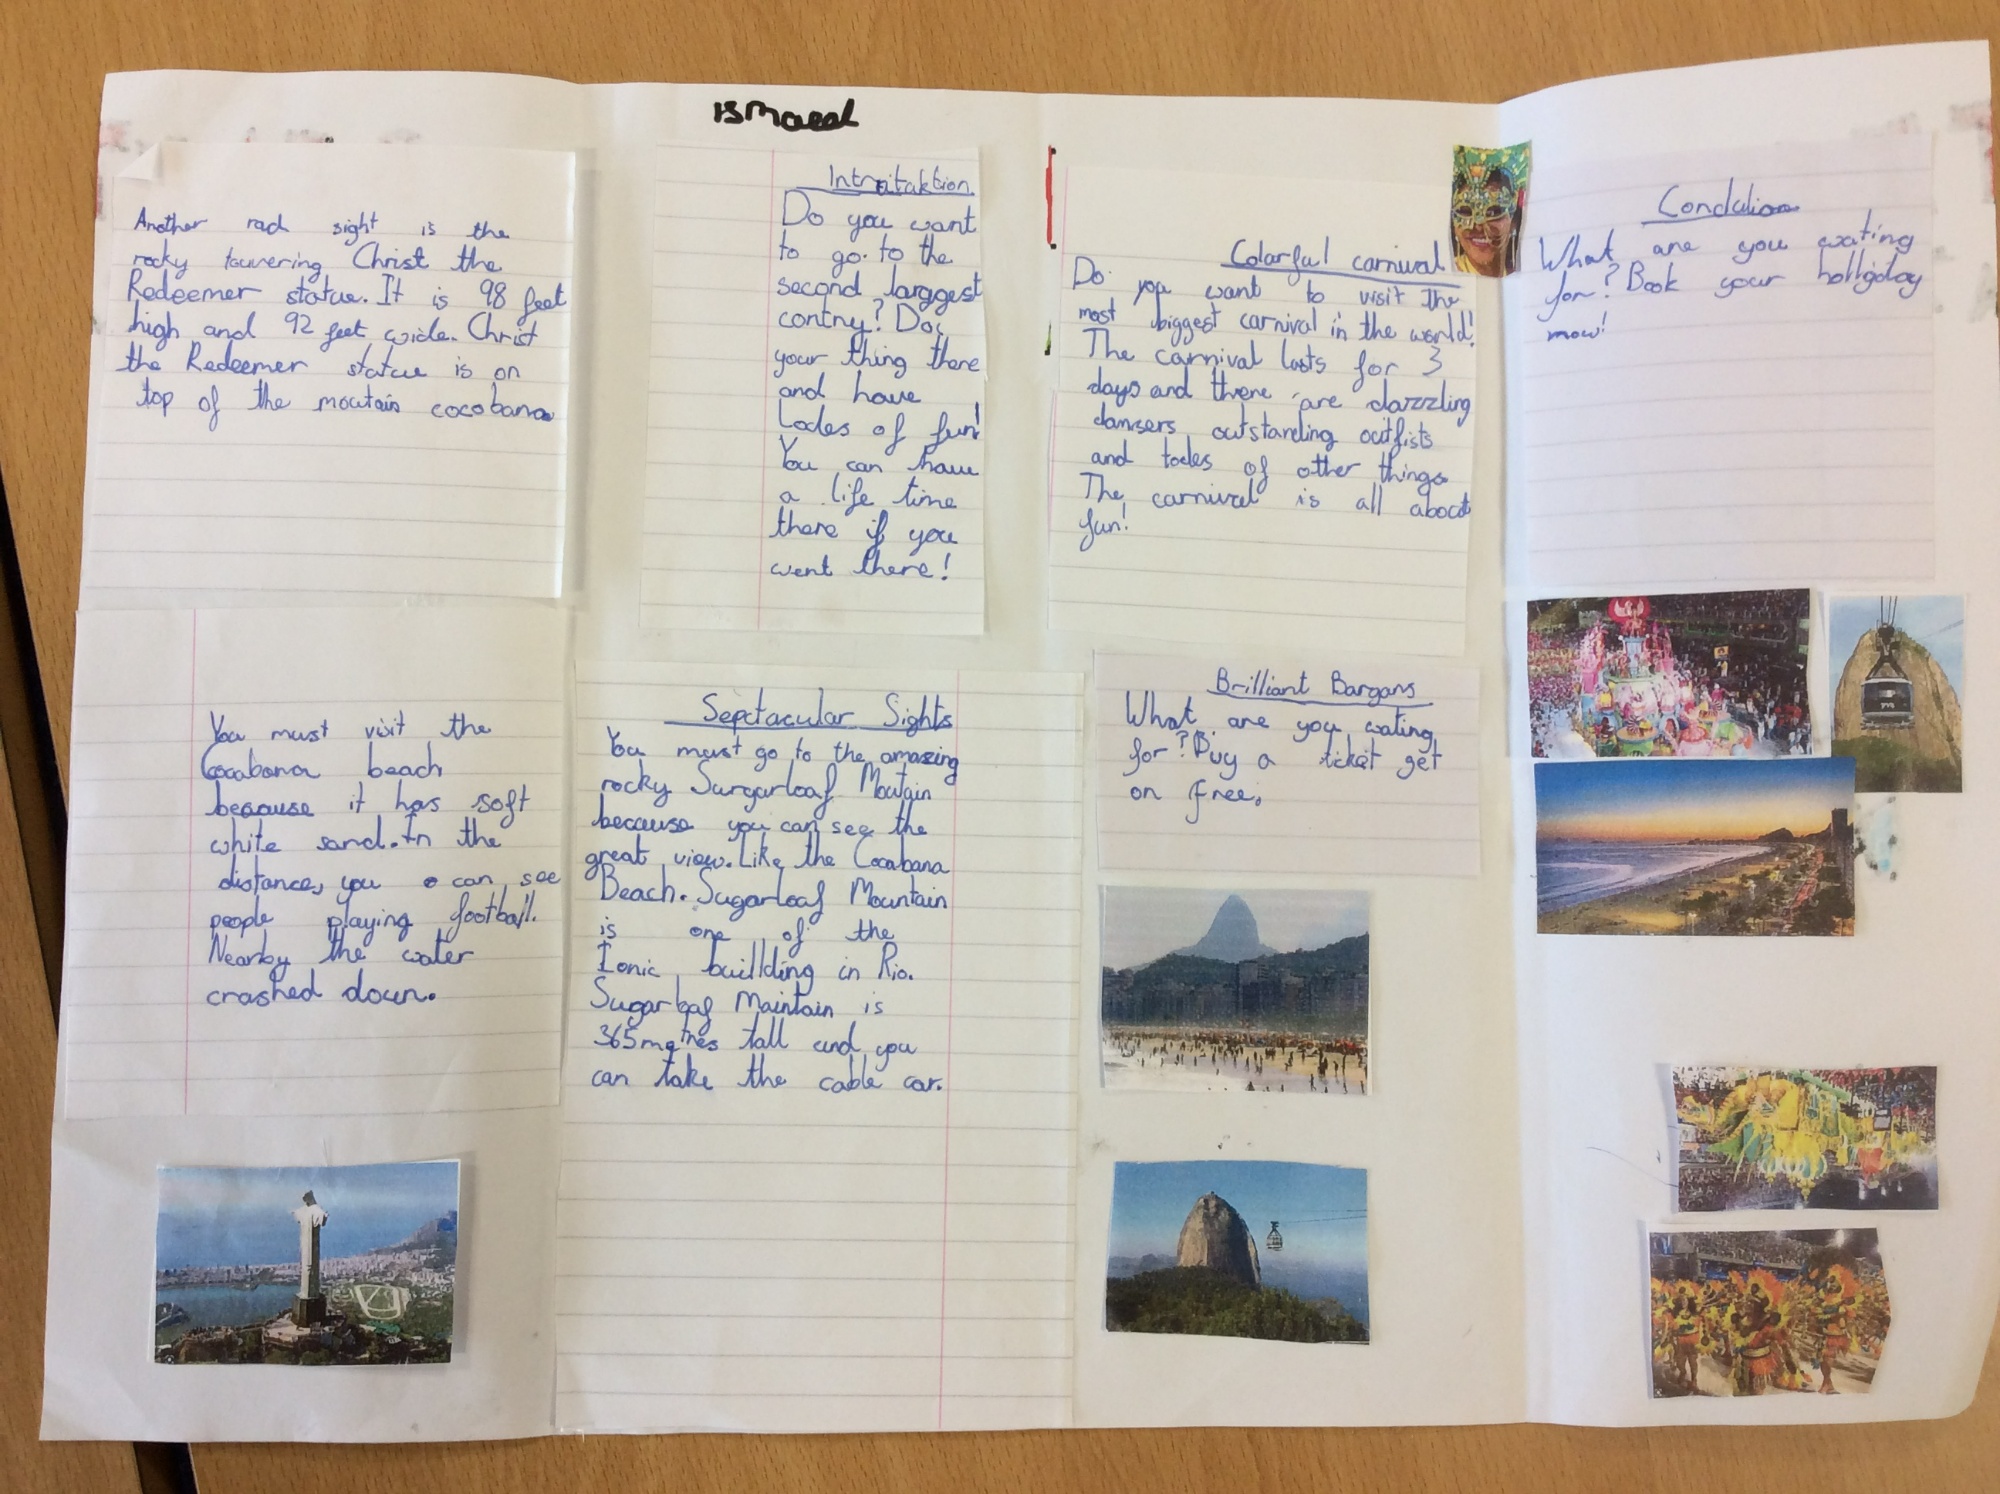 ismaeel
Another rad sight is the
rocky towering Christ the
Redeemer statue. It is 98 feet
high and 92 feet wide. Christ
the Redeemer statue is on
top of the moutain cocobana
You must visit the
Cocabana beach
because it has soft
white sand. In the
distance, you can see
people playing football.
Nearby the water
crashed down.
Intrataktion
Do you want
to go to the
second larggest
contry? Do
your thing there
and have
Lodes of fun!
You can have
a life time
there if you
went there!
Sepctacular Sights
You must go to the amazing
rocky Surgarloaf Moutain
because you can see the
great view. Like the Cocabana
Beach. Sugarloaf Mountain
is one of the
Ionic buillding in Rio.
Sugarloaf Maintain is
365 metres tall and you
can take the cable car.
Colarful carnival
Do you want to visit the
most biggest carnival in the world!
The carnival lasts for 3
days and there are dazzling
dansers outstanding outfists
and lodes of other things
The carnival is all about
fun!
Brilliant Bargans
What are you wating
for? Buy a ticket get
on free.
Conclulion
What are you wating
for? Book your holligday
now!